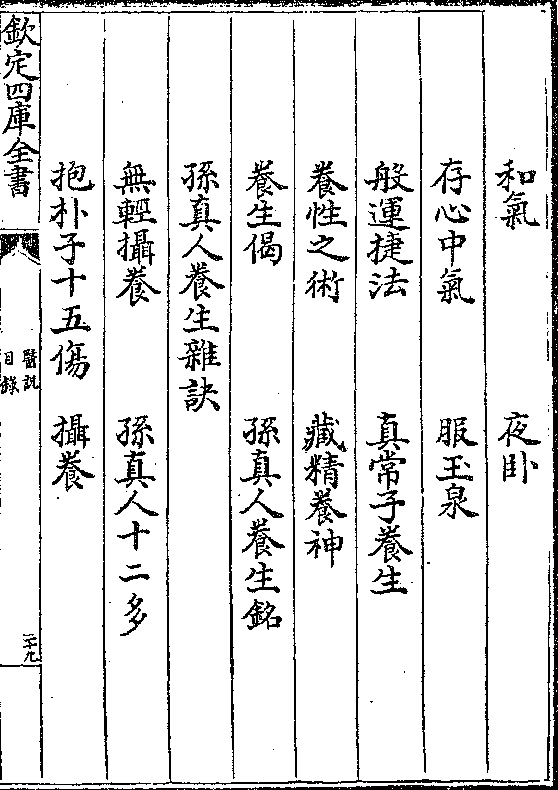 和氣　夜卧
存心中氣　服玉泉
般運捷法　真常子養生
養性之術　藏精養神
養生偈　孫真人養生銘
孫真人養生雜訣
無輕攝養　孫真人十二多
抱朴子十五傷　攝養
欽定四庫全書　醫説目錄　二十九